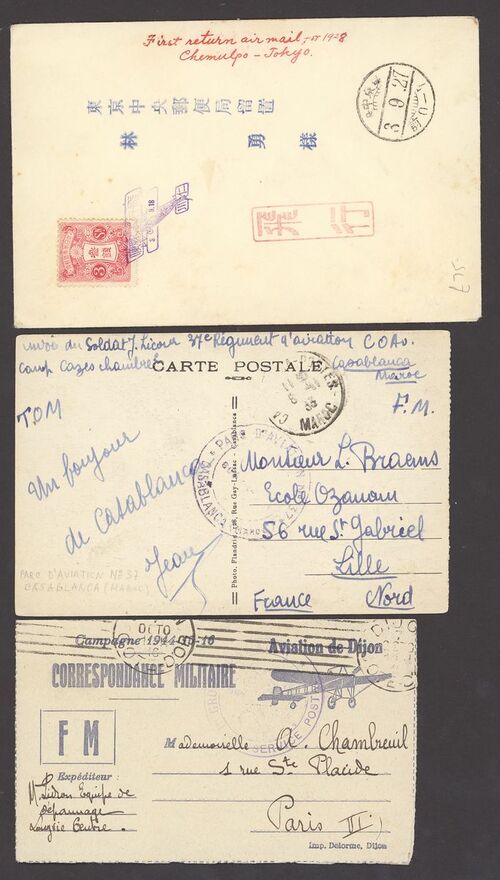 First return air mail, 1928
Chemulpo - Tokyo.
東京中央郵便局留置
林 勇 様
3. 9. 27
飛行
envoi du Soldat J. Licour 37e Régiment d'aviation C.O.A.
Camp Cazes chambre
Casablanca
Maroc
CARTE POSTALE
MAROC
T.O.M
F.M.
Un bonjour
de Casablanca
Jean
PARC D'AVIATION Nº 37
CASABLANCA (MAROC)
Photo. Flandrin, 128, Rue Gay-Lussac - Casablanca
Monsieur L. Braems
Ecole Ozanam
56 rue St Gabriel
Lille
France Nord
Campagne 1914-15-16
Aviation de Dijon
CORRESPONDANCE MILITAIRE
SERVICE POSTE
F M
Expéditeur :
Equipe de
Dépannage
Mademoiselle A. Chambreuil
1 rue Ste Placide
Paris VI
Imp. Delorme, Dijon